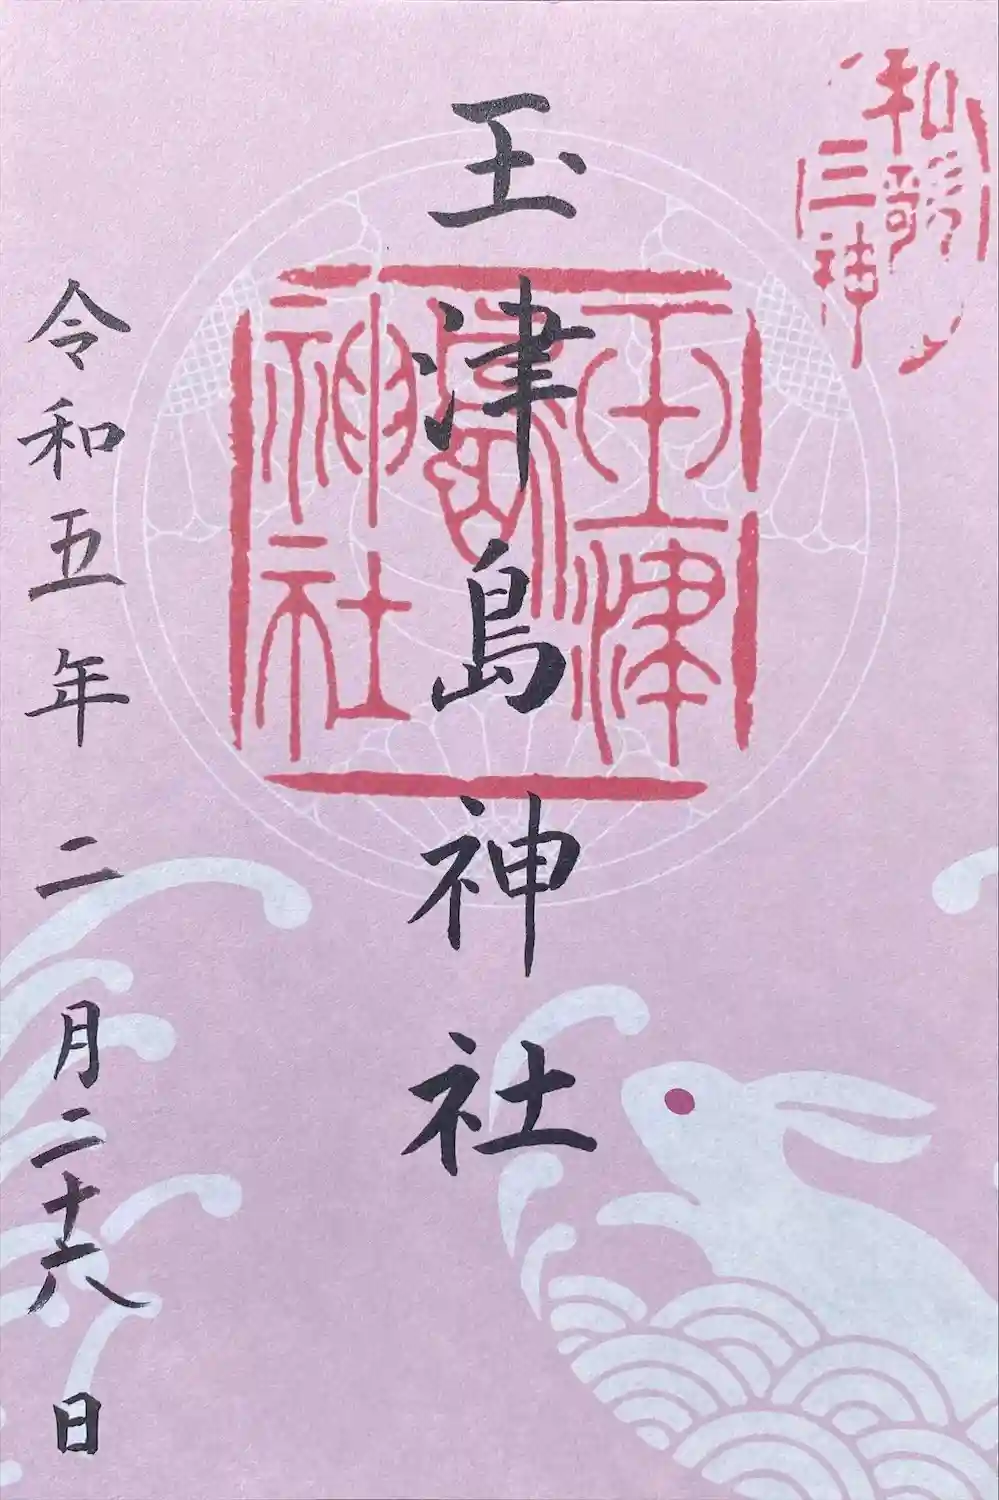 和歌
三神
玉津島神社
玉津
島
神社
令和五年二月二十六日